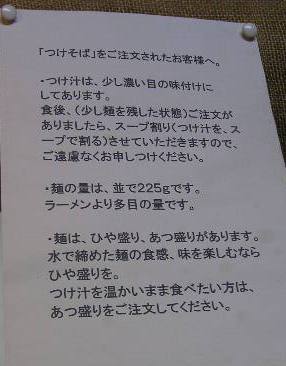 「つけそば」をご注文されたお客様へ。
・つけ汁は、少し濃い目の味付けに
してあります。
食後、(少し麺を残した状態)ご注文が
ありましたら、スープ割り(つけ汁を、ス
ープで割る)させていただきますので、
ご遠慮なくお申しつけください。
・麺の量は、並で225gです。
ラーメンより多目の量です。
・麺は、ひや盛り、あつ盛りがあります。
水で締めた麺の食感、味を楽しむなら
ひや盛りを。
つけ汁を温かいまま食べたい方は、
あつ盛りをご注文してください。